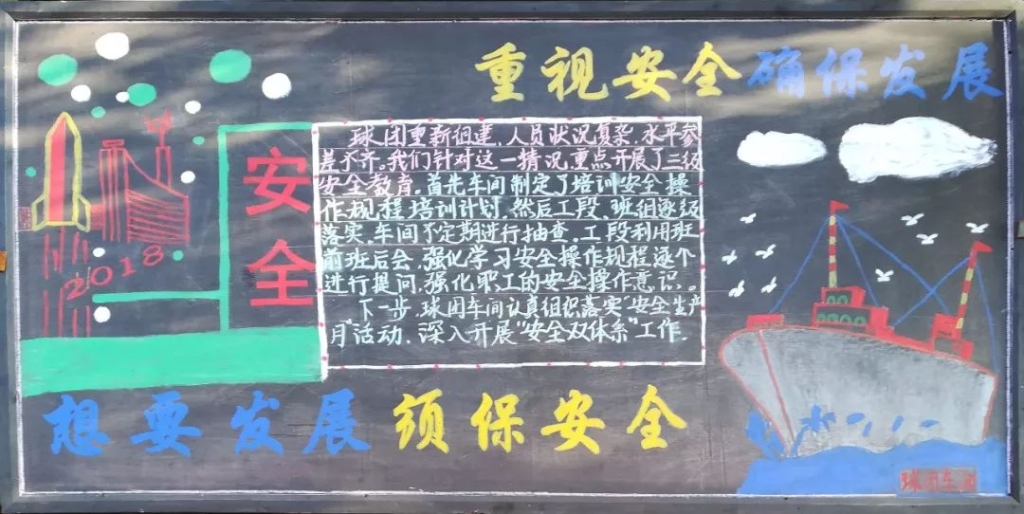 重视安全 确保发展
安全
2018
球团重新组建，人员状况复杂，水平参
差不齐，我们针对这一情况，重点开展了三级
安全教育。首先车间制定了培训安全操
作规程培训计划，然后工段、班组逐级
落实，车间不定期进行抽查，工段利用班
前班后会，强化学习安全操作规程逐个
进行提问，强化职工的安全操作意识。
下一步，球团车间认真组织落实“安全生产
月”活动，深入开展“安全双体系”工作.
想要发展 须保安全
球团车间